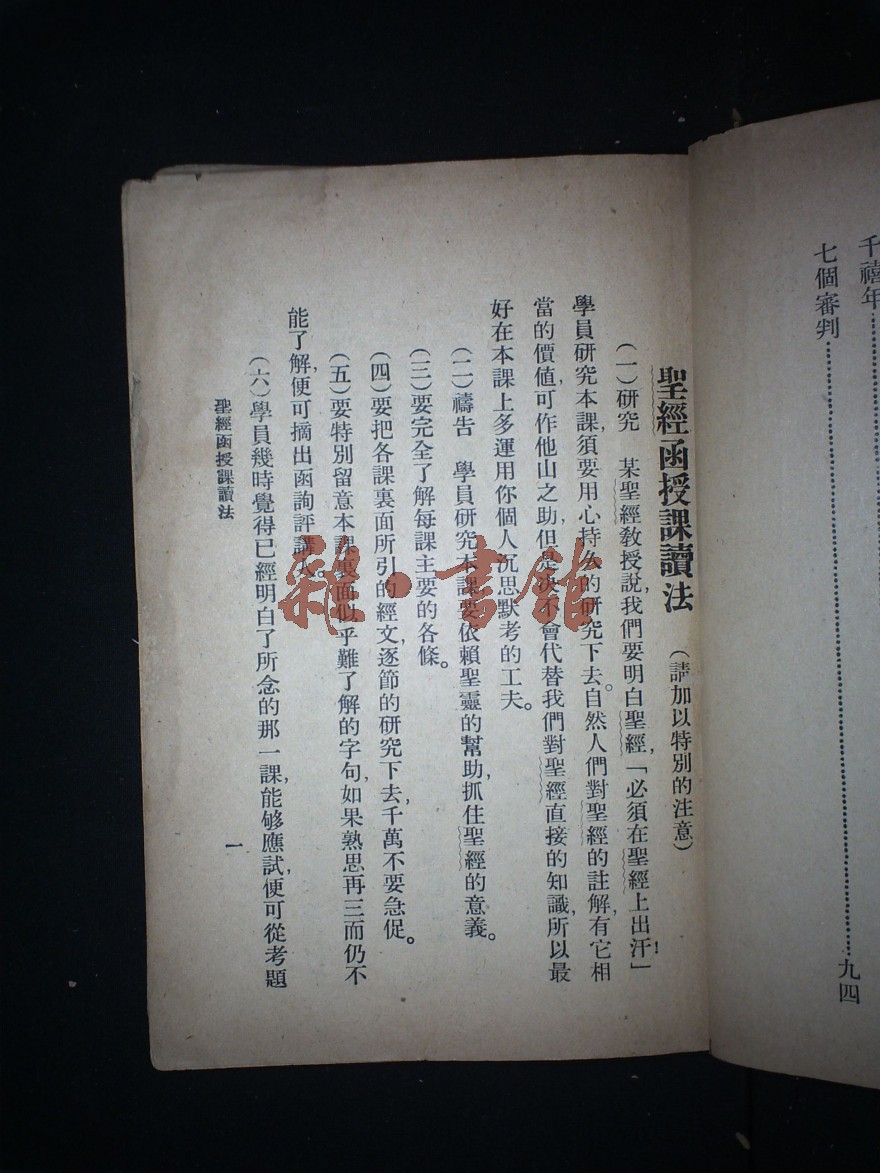 千禧年
七個審判……九四
聖經函授課讀法 (請加以特別的注意)
(一)研究 某聖經敎授說,我們要明白聖經,「必須在聖經上出汗!」
學員研究本課,須要用心持久的研究下去。自然人們對聖經的註解,有它相
當的價値,可作他山之助,但是決不會代替我們對聖經直接的知識,所以最
好在本課上多運用你個人沉思默考的工夫。
(二)禱告 學員研究本課,要依賴聖靈的幫助,抓住聖經的意義。
(三)要完全了解每課主要的各條。
(四)要把各課裏面所引的經文,逐節的研究下去,千萬不要急促。
(五)要特別留意本課裏面似乎難了解的字句,如果熟思再三而仍不
能了解,便可摘出函詢評講人。
(六)學員幾時覺得已經明白了所念的那一課,能够應試,便可從考題
聖經函授課讀法
一
雜·書館